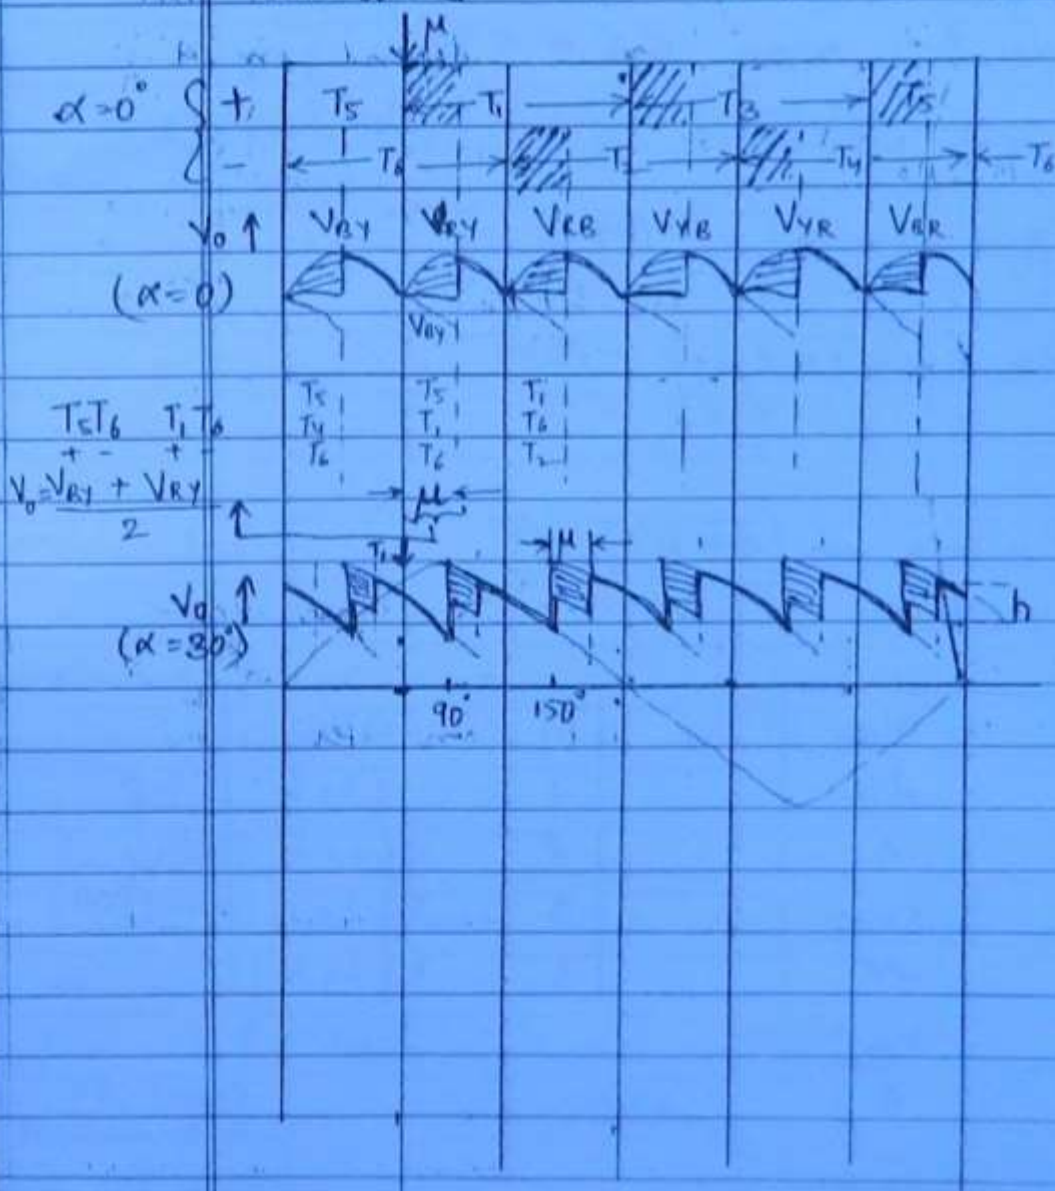 μ
α=0° { + T5 T1 T3 T5
{ - T6 T2 T4 T6
V0 ↑ VBY VRY VRB VYB VYR VBR
(α=0)
VBY
T5 T5 T1
T5T6 T1T6 T4 T1 T6
+ - + - T6 T6 T2
V0=VBY + VRY
2
μ
T1 μ
V0 ↑ h
(α=30°)
90° 150°